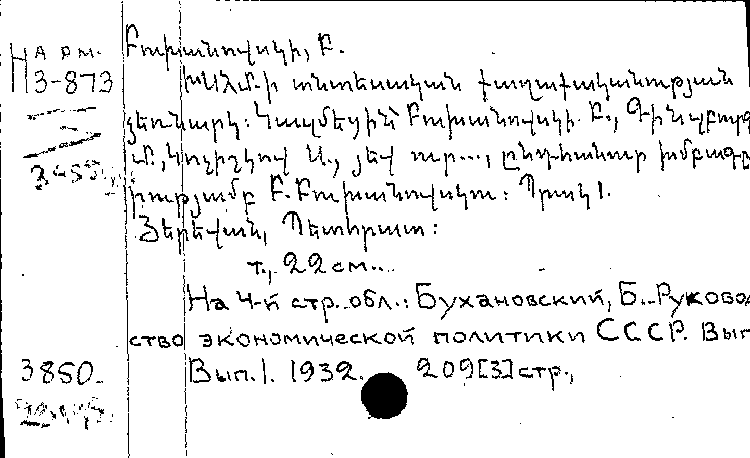 На арм.
Н 3-873
Բուխանովսկի, Բ.
ԽՍՀՄ-ի տնտեսական քաղաքականության
ձեռնարկ: Կազմեցին՝ Բուխանովսկի Բ., Գինզբուրգ
Մ., Կոչիշկով Ա., յեվ ուր..., ընդհանուր խմբագր
րությամբ Բ. Բուխանովսկու: Պրակ 1.
Յերեվան, Պետհրատ:
т., 22 см...
На 4-й стр. обл.: Бухановский, Б. Руковод
ство экономической политики СССР. Вып
3850. Вып. 1. 1932. 209[3] стр.,